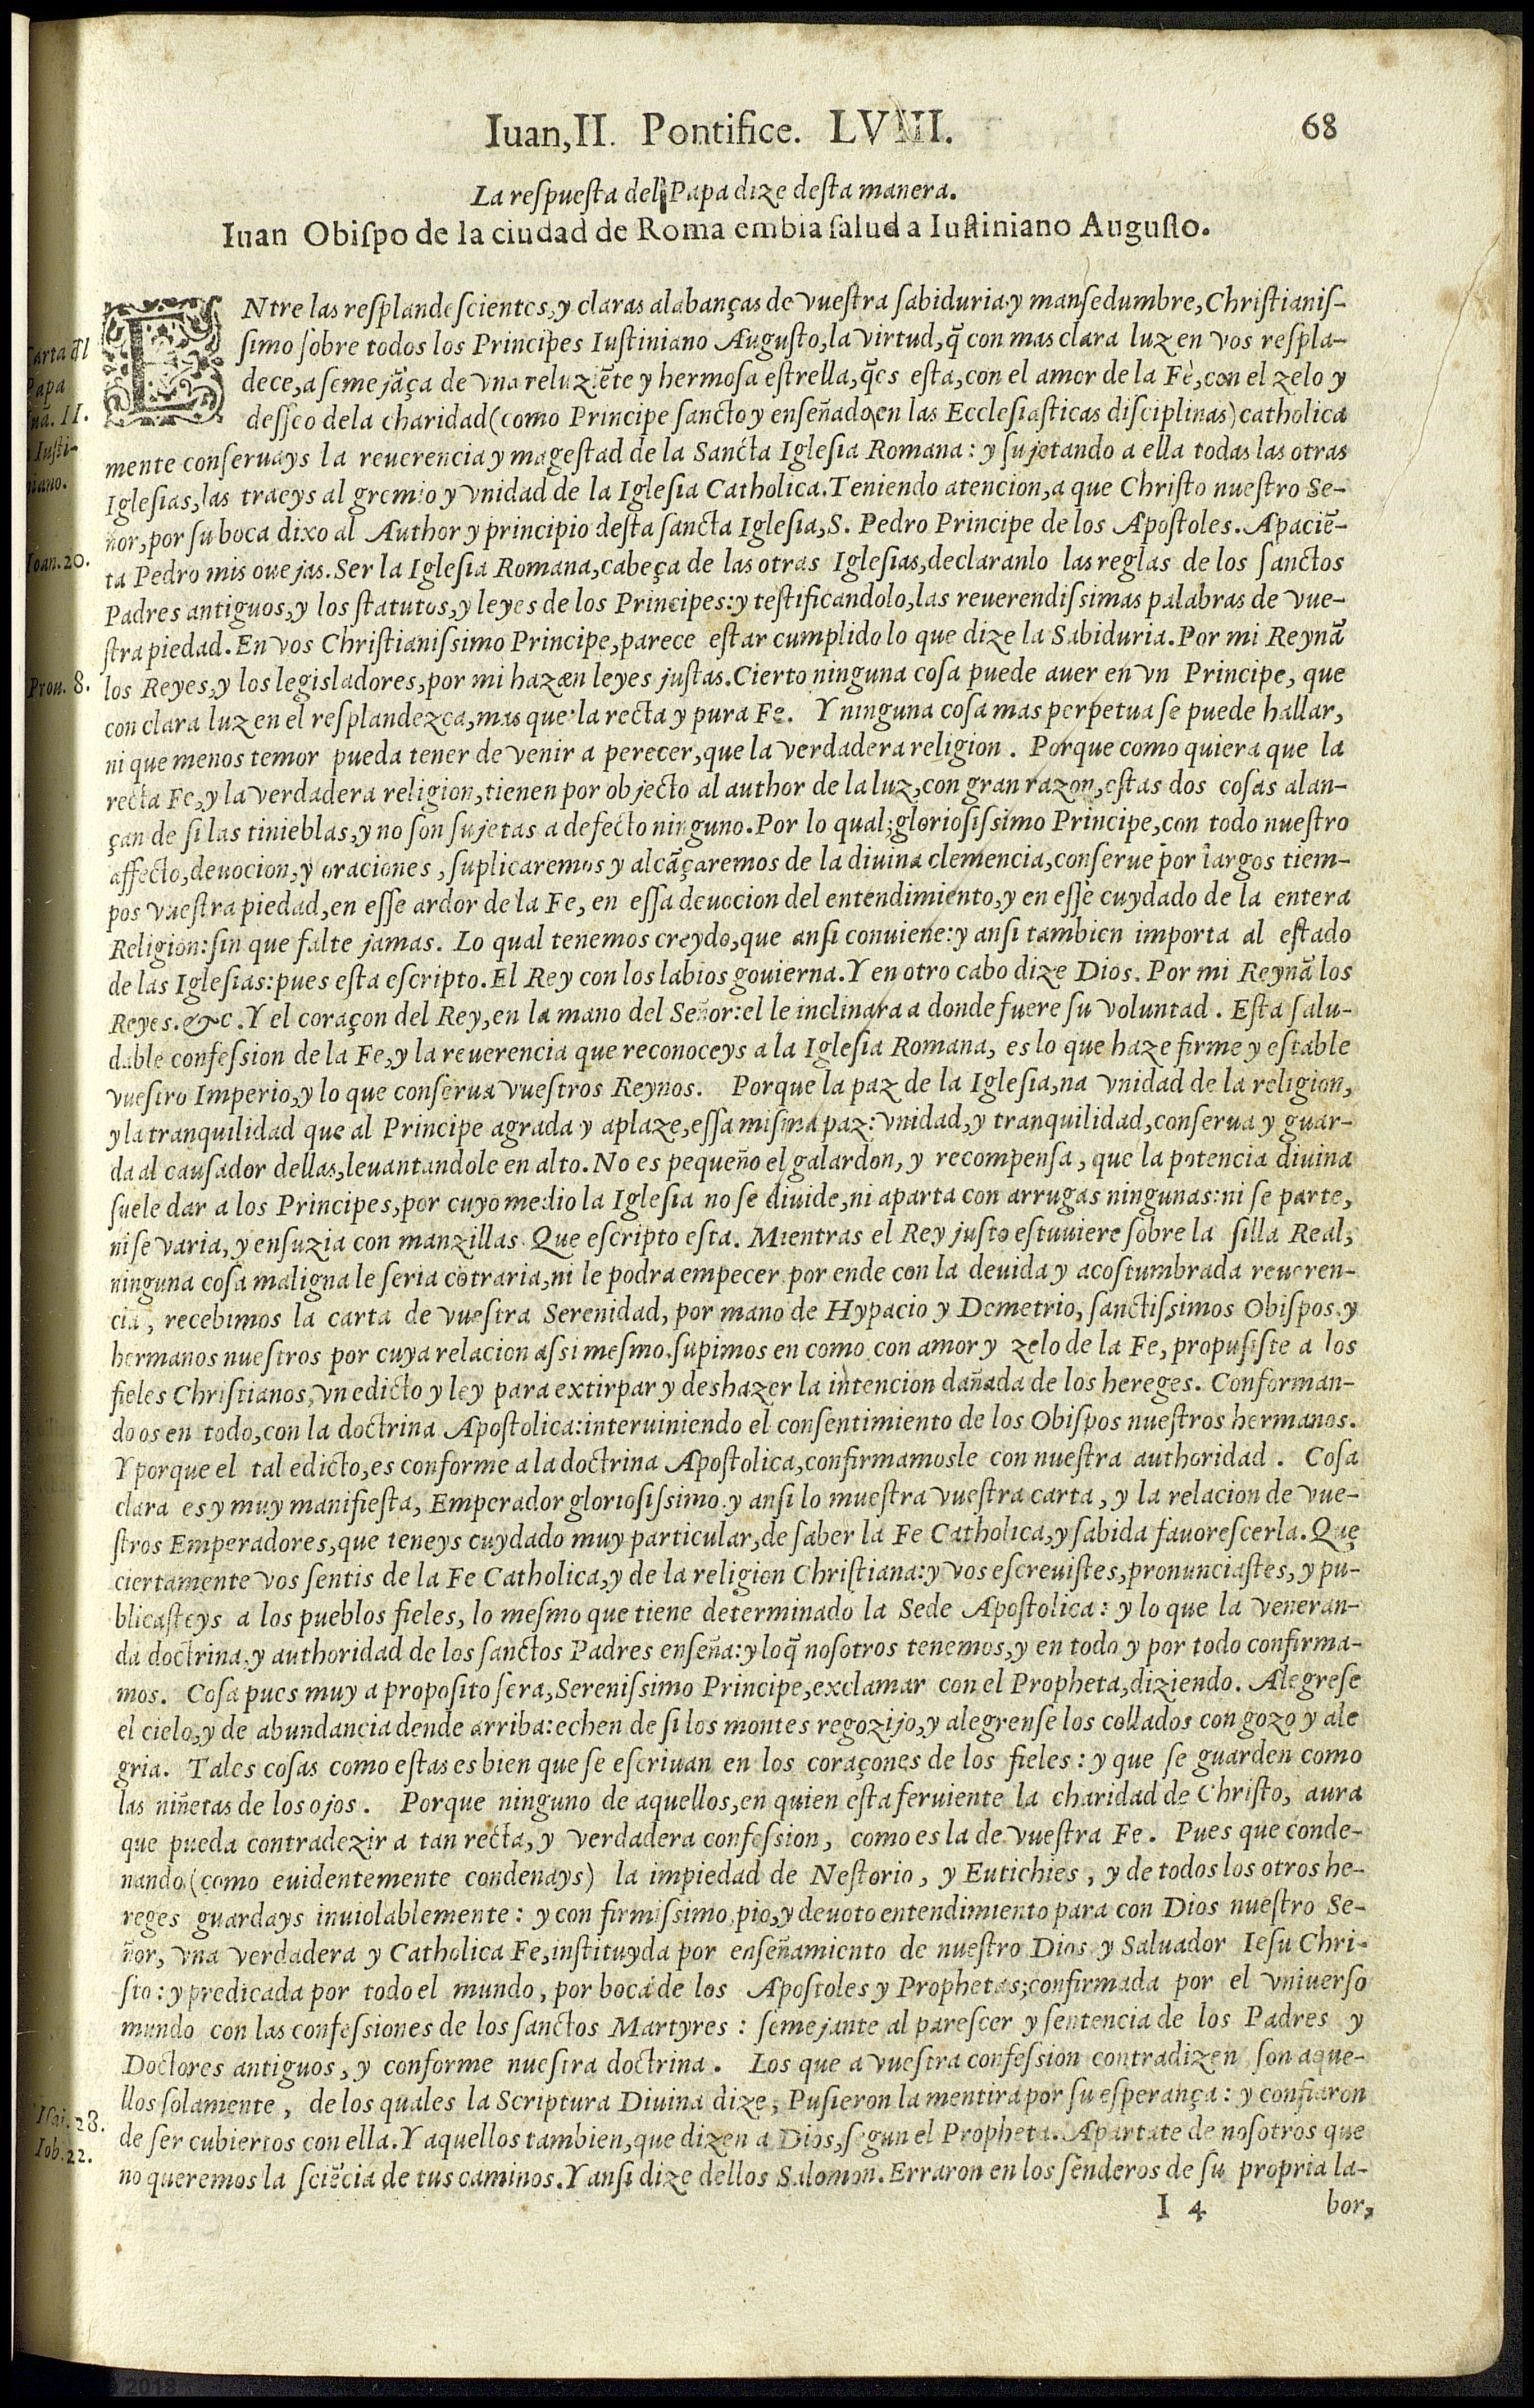 Iuan, II. Pontifice. LVIII.
68
La respuesta del Papa dize desta manera.
Iuan Obispo de la ciudad de Roma embia salud a Iustiniano Augusto.
ENtre las resplandescientes, y claras alabanças de vuestra sabiduria y mansedumbre, Christianis-
simo sobre todos los Principes Iustiniano Augusto, la virtud, q̃ con mas clara luz en vos respla-
dece, a semejãça de vna reluziẽte y hermosa estrella, q̃es esta, con el amor de la Fè, con el zelo y
desseo dela charidad (como Principe sancto y enseñado, en las Ecclesiasticas disciplinas) catholica
mente conseruays la reuerencia y magestad de la Sancta Iglesia Romana: y sujetando a ella todas las otras
Iglesias, las traeys al gremio y vnidad de la Iglesia Catholica. Teniendo atencion, a que Christo nuestro Se-
ñor, por su boca dixo al Author y principio desta sancta Iglesia, S. Pedro Principe de los Apostoles. Apaciẽ-
ta Pedro mis ouejas. Ser la Iglesia Romana, cabeça de las otras Iglesias, declaranlo las reglas de los sanctos
Padres antiguos, y los statutos, y leyes de los Principes: y testificandolo, las reuerendissimas palabras de vue-
stra piedad. En vos Christianissimo Principe, parece estar cumplido lo que dize la Sabiduria. Por mi Reynã
los Reyes, y los legisladores, por mi hazæn leyes justas. Cierto ninguna cosa puede auer en vn Principe, que
con clara luz en el resplandezca, mas que la recta y pura Fe. Y ninguna cosa mas perpetua se puede hallar,
ni que menos temor pueda tener de venir a perecer, que la verdadera religion. Porque como quiera que la
recta Fe, y la verdadera religion, tienen por objecto al author de la luz, con gran razon, estas dos cosas alan-
çan de si las tinieblas, y no son sujetas a defecto ninguno. Por lo qual; gloriosissimo Principe, con todo nuestro
affecto, deuocion, y oraciones, suplicaremos y alcãçaremos de la diuina clemencia, conserue por largos tiem-
pos vuestra piedad, en esse ardor de la Fe, en essa deuocion del entendimiento, y en esse cuydado de la entera
Religion: sin que falte jamas. Lo qual tenemos creydo, que ansi conuiene: y ansi tambien importa al estado
de las Iglesias: pues esta escripto. El Rey con los labios gouierna. Y en otro cabo dize Dios. Por mi Reynã los
Reyes. &c. Y el coraçon del Rey, en la mano del Señor: el le inclinara a donde fuere su voluntad. Esta salu-
dable confession de la Fe, y la reuerencia que reconoceys a la Iglesia Romana, es lo que haze firme y estable
vuestro Imperio, y lo que conserua vuestros Reynos. Porque la paz de la Iglesia, na vnidad de la religion,
y la tranquilidad que al Principe agrada y aplaze, essa misma paz: vnidad, y tranquilidad, conserua y guar-
da al causador dellas, leuantandole en alto. No es pequeño el galardon, y recompensa, que la potencia diuina
suele dar a los Principes, por cuyo medio la Iglesia no se diuide, ni aparta con arrugas ningunas: ni se parte,
ni se varia, y ensuzia con manzillas. Que escripto esta. Mientras el Rey justo estuuiere sobre la silla Real,
ninguna cosa maligna le seria cõtraria, ni le podra empecer. por ende con la deuida y acostumbrada reueren-
cia, recebimos la carta de vuestra Serenidad, por mano de Hypacio y Demetrio, sanctissimos Obispos, y
hermanos nuestros por cuya relacion assi mesmo, supimos en como con amor y zelo de la Fe, propusiste a los
fieles Christianos, vn edicto y ley para extirpar y deshazer la intencion dañada de los hereges. Conforman-
do os en todo, con la doctrina Apostolica: interuiniendo el consentimiento de los Obispos nuestros hermanos.
Y porque el tal edicto, es conforme a la doctrina Apostolica, confirmamosle con nuestra authoridad. Cosa
clara es y muy manifiesta, Emperador gloriosissimo. y ansi lo muestra vuestra carta, y la relacion de vue-
stros Emperadores, que teneys cuydado muy particular, de saber la Fe Catholica, y sabida fauorescerla. Que
ciertamente vos sentis de la Fe Catholica, y de la religion Christiana: y vos escreuistes, pronunciastes, y pu-
blicasteys a los pueblos fieles, lo mesmo que tiene determinado la Sede Apostolica: y lo que la veneran-
da doctrina, y authoridad de los sanctos Padres enseña: y loq̃ nosotros tenemos, y en todo y por todo confirma-
mos. Cosa pues muy a proposito sera, Serenissimo Principe, exclamar con el Propheta, diziendo. Alegrese
el cielo, y de abundancia dende arriba: echen de si los montes regozijo, y alegrense los collados con gozo y ale
gria. Tales cosas como estas es bien que se escriuan en los coraçones de los fieles: y que se guarden como
las niñetas de los ojos. Porque ninguno de aquellos, en quien esta feruiente la charidad de Christo, aura
que pueda contradezir a tan recta, y verdadera confession, como es la de vuestra Fe. Pues que conde-
nando (como euidentemente condenays) la impiedad de Nestorio, y Eutichies, y de todos los otros he-
reges guardays inuiolablemente: y con firmissimo, pio, y deuoto entendimiento para con Dios nuestro Se-
ñor, vna verdadera y Catholica Fe, instituyda por enseñamiento de nuestro Dios y Saluador Iesu Chri-
sto: y predicada por todo el mundo, por boca de los Apostoles y Prophetas; confirmada por el vniuerso
mundo con las confessiones de los sanctos Martyres: semejante al parescer y sentencia de los Padres y
Doctores antiguos, y conforme nuestra doctrina. Los que a vuestra confession contradizen son aque-
llos solamente, de los quales la Scriptura Diuina dize, Pusieron la mentira por su esperança: y confiaron
de ser cubiertos con ella. Y aquellos tambien, que dizen a Dios, segun el Propheta. Apartate de nosotros que
no queremos la sciẽcia de tus caminos. Y ansi dize dellos Salomon. Erraron en los senderos de su propria la-
I 4
bor,
Carta d̃l
Papa
Iuã. II.
a Iusti-
niano.
Ioan. 20.
Prou. 8.
Isai. 28.
Iob. 22.
2018